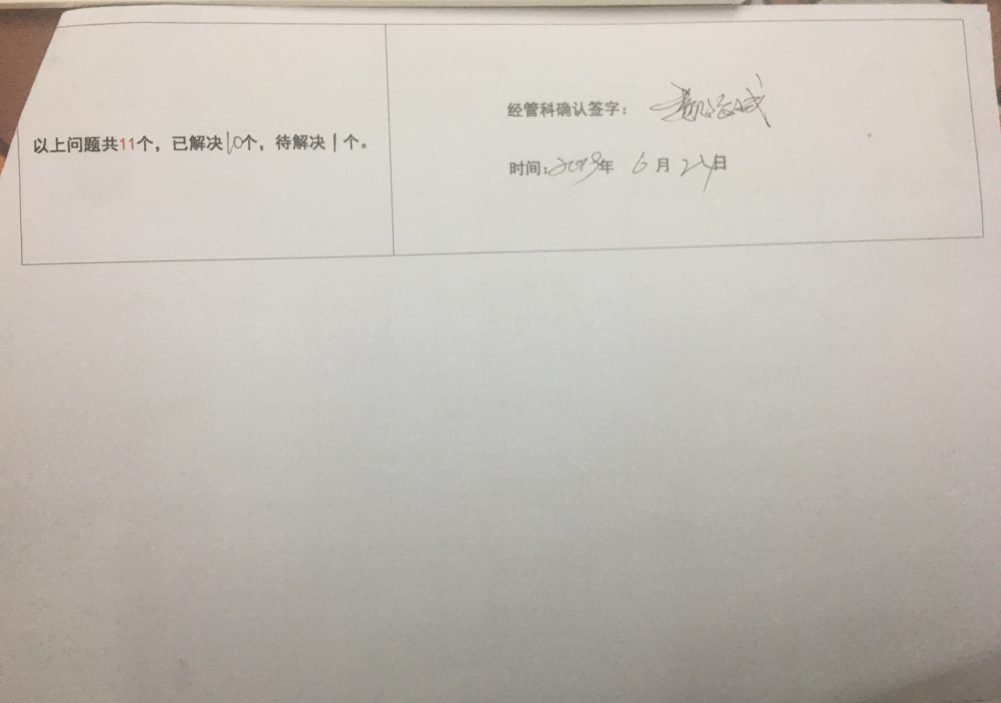 以上问题共11个，已解决10个，待解决1个。
经管科确认签字：
时间：2019年 6月 24日